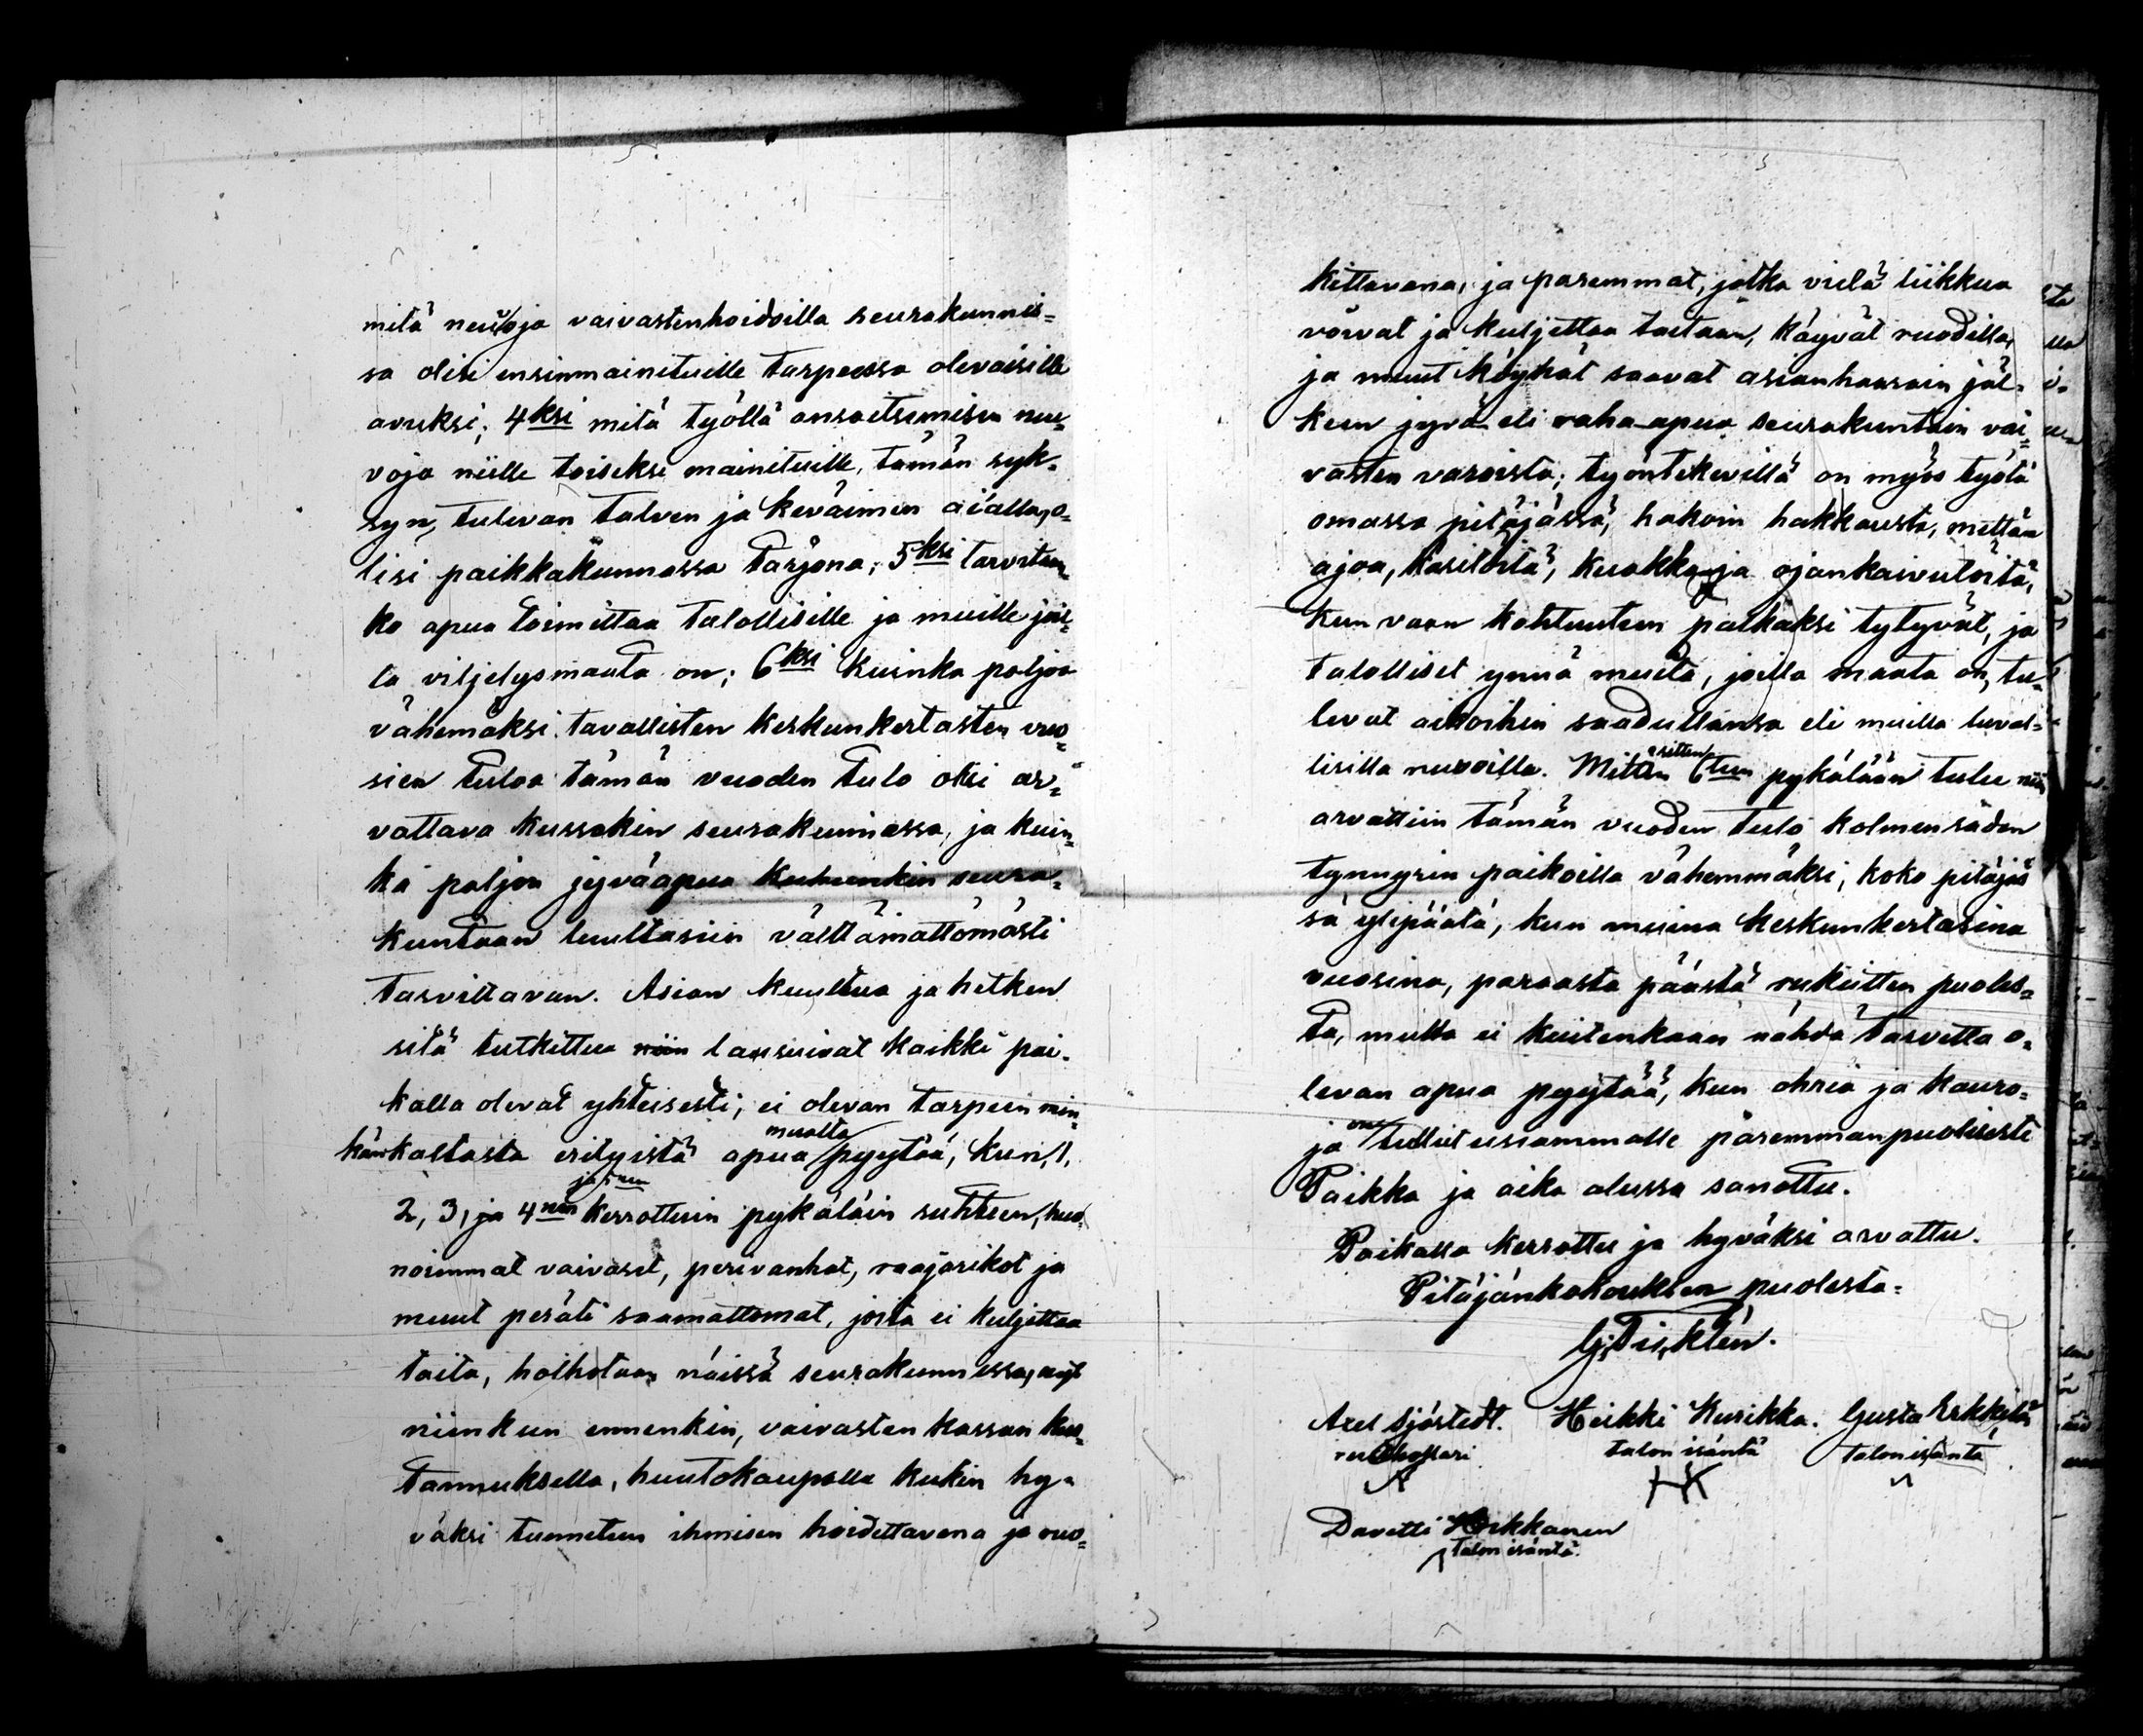 mitä neuvoja vaivastenhoidoilla seurakunnis-
sa olisi ensinmainituille tarpeessa olevaisille
avuksi; 4ksi mitä työllä ansaitsemisen neu-
voja niille toiseksi mainituille, tämän syk-
syn, tulevan talven ja keväimen aialla, o-
lisi paikkakunnassa tarjona; 5ksi tarvitaan-
ko apua toimittaa talollisille ja muille joil-
la viljelysmaata on; 6ksi kuinka paljon
vähemäksi tavallisten keskunkertasten vuo-
sien tuloa tämän vuoden tulo olisi ar-
vattava kussakin seurakunnassa, ja kuin-
ka paljon jyväapua kuhunkin seura-
kuntaan luultasiin välttämättömästi
tarvittavan. Asian kuultua ja hetken
sitä tutkittua niin lausuivat kaikki pai-
kalla olevat yhteisesti, ei olevan tarpeen min-
känkaltasta erityistä apua muolta pyytää, kun, 1,
2, 3, ja 4nen ja 5nen kerrottuin pykäläin suhteen, huo-
noimmat vaivaset, perivanhat, raajarikot ja
muut peräti saamattomat, joita ei kuljettaa
taita, holhotaan näissä seurakunnissa, nyt
niinkuin ennenkin, vaivasten kassan kus-
tannuksella, huutokaupalla kukin hy-
väksi tunnetun ihmisen hoidettavana ja ruo-
kittavana, ja paremmat, jotka vielä liikkua
voivat ja kuljettaa taitaan, käyvät ruodilla,
ja muut köyhät saavat asianhaarain jäl-
keen jyvä eli raha-apua seurakuntain vai-
vasten varoista; työntekevillä on myös työtä
omassa pitäjässä, hakoin hakkausta, mettän
ajoa, käsitöitä, kuokka- ja ojankaivutöitä,
kun vaan kohtuuteen palkaksi tytyvät, ja
talolliset ynnä muita, joilla maata on, tu-
levat aikoihin saadullansa eli muilla luval-
lisilla nuvoilla. Mitten sitten 6teen pykälään tulee niin
arvattiin tämän vuoden tulo kolmensäden
tynnyrin paikoilla vähemmäksi, koko pitäjäs-
sä ylipäätä, kun muina keskunkertasina
vuosina, paraasta päästä rukiitten puoles-
ta, mutta ei kuitenkaan nähdä tarvetta o-
levan apua pyytää, kun ohria ja kauro-
ja on tullut useammalle paremmanpuolisesti
Paikka ja aika alussa sanottu.
Paikalla kerrottu ja hyväksi arvattu.
Pitäjänkokouksen puolesta:
G. Ticklén.
Axel Sjöstedt. Heikki Kurikka. Gusta Erkkilä
ruukhollari talon isäntä talon isäntä
Davetti Heikkanen
talon isäntä.